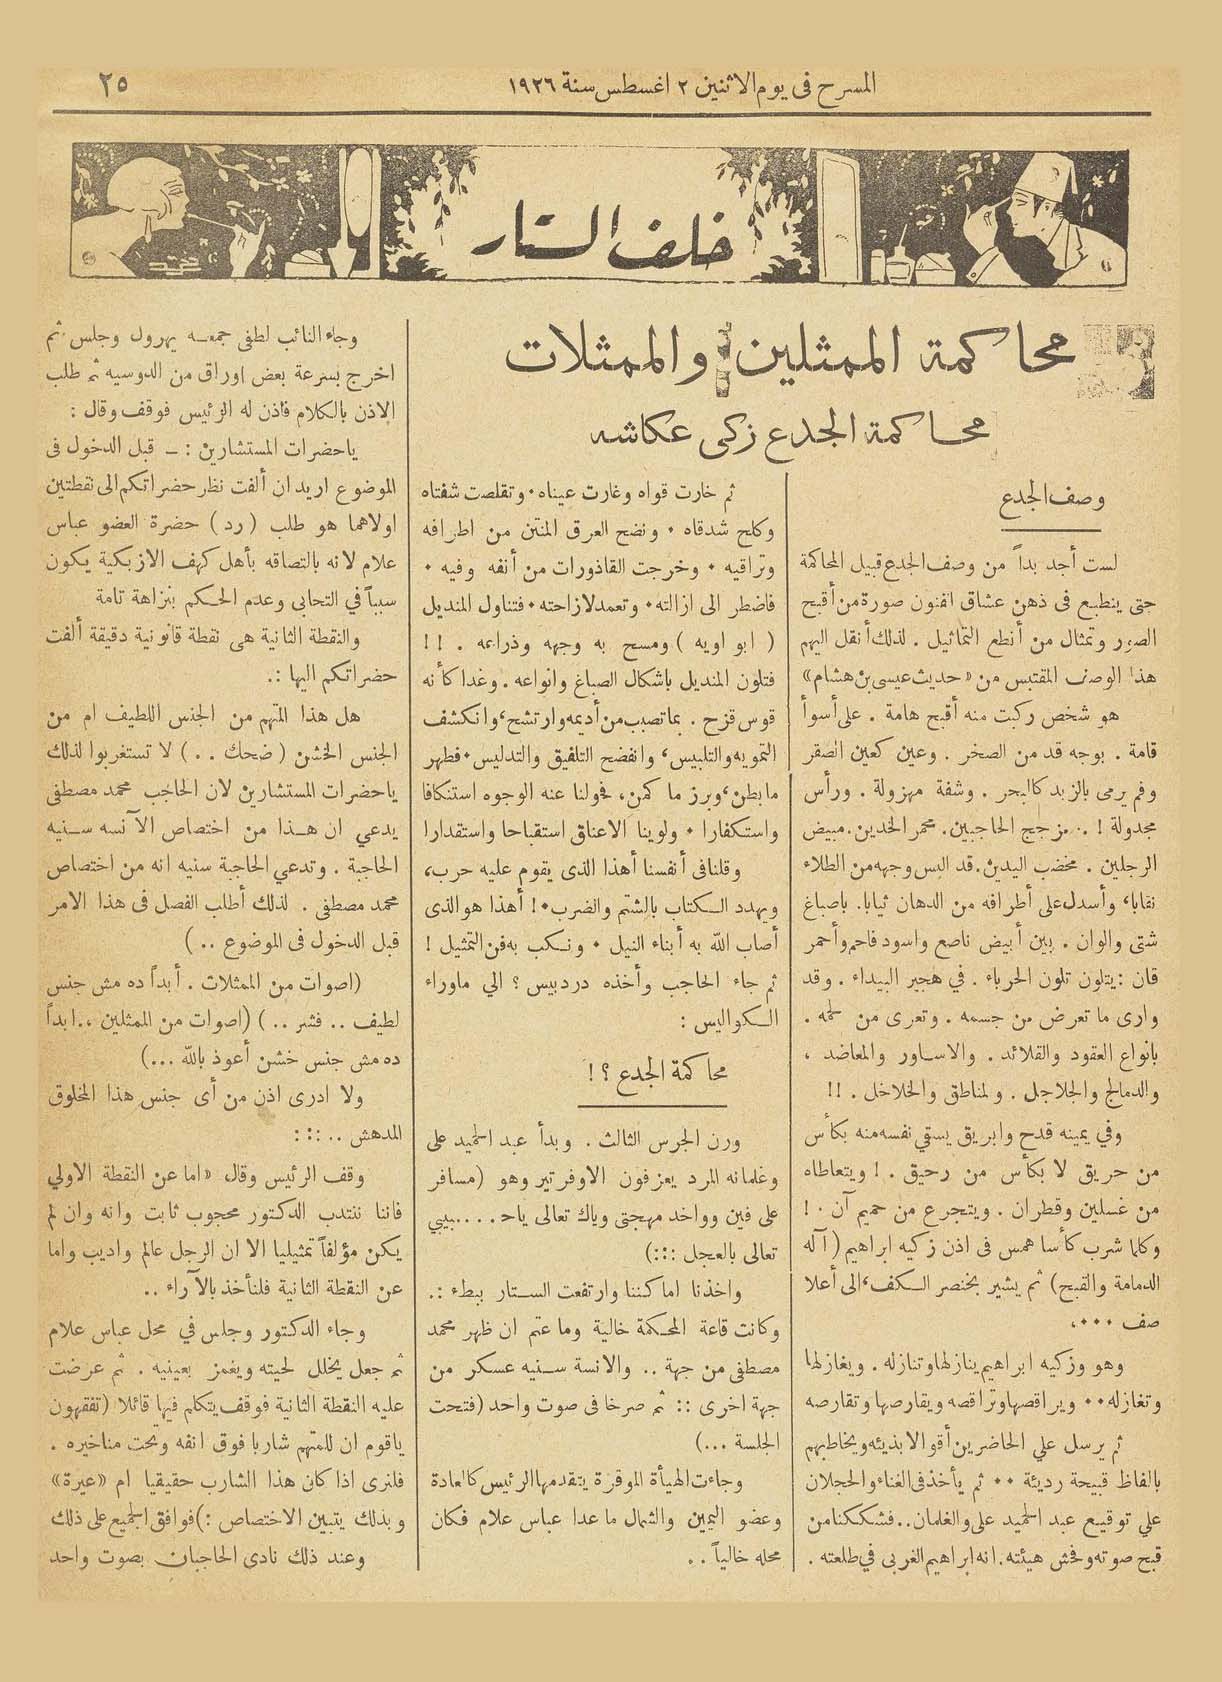 المسرح فى يوم الاثنين ٢ اغسطس سنة ١٩٢٦
٢٥
خلف الستار
محاكمة الممثلين والممثلات
محاكمة الجدع زكى عكاشه
وصف الجدع
لست أجد بداً من وصف الجدع قبيل المحاكمة
حتى ينطبع فى ذهن عشاق افنون صورة من أقبح
الصور وتمثال من أنطع التماثيل . لذلك أنقل اليهم
هذا الوصف المقتبس من «حديث عيسى بن هشام»
هو شخص ركبت منه أقبح هامة . على أسوأ
قامة . بوجه قد من الصخر . وعين كعين الصقر
وفم يرمى بالزبد كالبحر . وشفة مهزولة . ورأس
مجدولة ! . . مزجج الحاجبين. محمر الخدين. مبيض
الرجلين . مخضب اليدين. قد البس وجهه من الطلاء
نقابا، وأسدل على أطرافه من الدهان ثيابا. باصباغ
شتى والوان . بين أبيض ناصع واسود فاحم وأحمر
قان : يتلون تلون الحرباء . في هجير البيداء . وقد
وارى ما تعرض من جسمه . وتعرى من لحمه .
بانواع العقود والقلائد . والاساور والمعاضد ،
والدمالج والجلاجل . ولمناطق والخلاخل . !!
وفي يمينه قدح وابريق يستقي نفسه منه بكأس
من حريق لا بكأس من رحيق . ! ويتعاطاه
من غسلين وقطران . ويتجرع من حميم آن . !
وكلما شرب كأسا همس فى اذن زكيه ابراهيم (آله
الدمامة والقبح) ثم يشير بخنصر الكف، الى أعلا
صف ...،
وهو وزكيه ابراهيم ينازلها وتنازله . ويغازلها
وتغازله .. ويراقصها وتراقصه ويقارصها وتقارصه
ثم يرسل علي الحاضرين أقوالا بذيئه ويخاطبهم
بالفاظ قبيحة رديئة .. ثم يأخذ فى الغناء والحجلان
علي توقيع عبد الحميد على والغلمان.. فشككنا من
قبح صوته وفحش هيئته . انه ابراهيم الغربى في طلعته .
ثم خارت قواه وغارت عيناه . وتقلصت شفتاه
وكلح شدقاه . ونضح العرق المنتن من اطرافه
وتراقيه . وخرجت القاذورات من أنفه وفيه .
فاضطر الى ازالته . وتعمد لازاحته . فتناول المنديل
( ابو اويه ) ومسح به وجهه وذراعه . ! !
فتلون المنديل باشكال الصباغ وانواعه . وغدا كأنه
قوس قزح . بما تصبب من أديمه وارتشح، وانكشف
التمويه والتلبيس، وانفضح التلفيق والتدليس . فظهر
ما بطن، وبرز ما كمن، فحولنا عنه الوجوه استنكافا
واستكفارا . ولوينا الاعناق استقباحا واستقدارا
وقلنا فى أنفسنا أهذا الذى يقوم عليه حرب،
ويهدد الكتاب بالشتم والضرب . ! أهذا هو الذى
أصاب الله به أبناء النيل . ونكب به فن التمثيل !
ثم جاء الحاجب وأخذه دردبيس ؟ الي ماوراء
الكواليس :
محاكمة الجدع ؟ !
ورن الجرس الثالث . وبدأ عبد الحميد على
وغلمانه المرد يعزفون الاوفرتير وهو (مسافر
على فين وواخد مهجتى وياك تعالى ياح.....بيبي
تعالى بالعجل :::)
واخذنا اما كننا وارتفعت الستار ببطء :.
وكانت قاعة المحكمة خالية وما عتم ان ظهر محمد
مصطفى من جهة .. والانسة سنيه عسكر من
جهة اخرى :: ثم صرخا فى صوت واحد (فتحت
الجلسة ...)
وجاءت الهيأة الموقرة يتقدمها الرئيس كالعادة
وعضو اليمين والشمال ما عدا عباس علام فكان
محله خالياً . .
وجاء النائب لطفى جمعه يهرول وجلس ثم
اخرج بسرعة بعض اوراق من الدوسيه ثم طلب
الاذن بالكلام فأذن له الرئيس فوقف وقال :
ياحضرات المستشارين : ـ قبل الدخول فى
الموضوع اريد ان ألفت نظر حضراتكم الى نقطتين
اولاهما هو طلب (رد) حضرة العضو عباس
علام لانه بالتصاقه بأهل كهف الازبكية يكون
سبباً في التحابى وعدم الحكم بنزاهة تامة
والنقطة الثانية هى نقطة قانونية دقيقة ألفت
حضراتكم اليها :.
هل هذا المتهم من الجنس اللطيف ام من
الجنس الخشن (ضحك . .) لا تستغربوا لذلك
ياحضرات المستشارين لان الحاجب محمد مصطفى
يدعي ان هذا من اختصاص الآنسه سنيه
الحاجبة . وتدعي الحاجبة سنيه انه من اختصاص
محمد مصطفى . لذلك أطلب الفصل فى هذا الامر
قبل الدخول فى الموضوع .. )
(اصوات من الممثلات . أبداً ده مش جنس
لطيف .. فشر .. ) (اصوات من الممثلين ،،. ابداً
ده مش جنس خشن أعوذ بالله ...)
ولا ادرى اذن من أى جنس هذا المخلوق
المدهش .. :::
وقف الرئيس وقال، «اما عن النقطة الاولي
فاننا ننتدب الدكتور محجوب ثابت وانه وان لم
يكن مؤلفاً تمثيليا الا ان الرجل عالم واديب واما
عن النقطة الثانية فلنأخذ بالآراء ..
وجاء الدكتور وجلس في محل عباس علام
ثم جعل يخلل لحيته ويغمز بعينيه . ثم عرضت
عليه النقطة الثانية فوقف يتكلم فيها قائلا (تفقهون
ياقوم ان للمتهم شاربا فوق انفه وتحت مناخيره .
فلنرى اذا كان هذا الشارب حقيقيا ام «عيرة»
وبذلك يتبين الاختصاص :) فوافق الجميع على ذلك
وعند ذلك نادى الحاجبان بصوت واحد